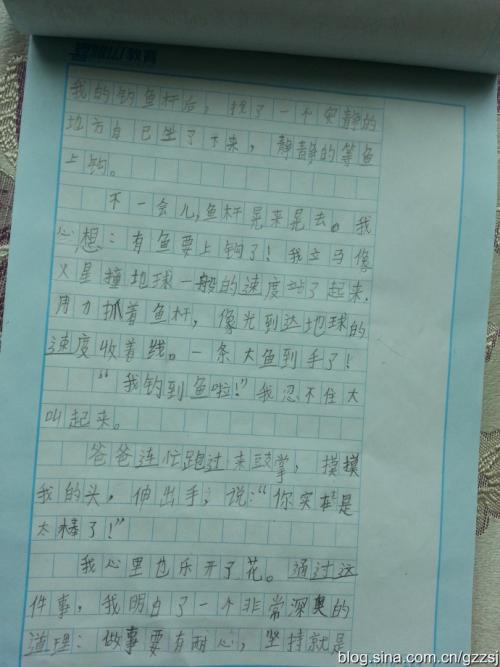 教育
我的钓鱼杆后，找了一个安静的
地方自己坐了下来，静静的等鱼
上钩。
不一会儿，鱼杆晃来晃去。我
心想：有鱼要上钩了！我立马像
火星撞地球一般的速度站了起来，
用力抓着鱼杆，像光到达地球的
速度收着线。一条大鱼到手了！
“我钓到鱼啦！”我忍不住大
叫起来。
爸爸连忙跑过来鼓掌，摸摸
我的头，伸出手，说：“你实在是
太棒了！”
我心里也乐开了花。通过这
件事，我明白了一个非常深奥的
道理：做事要有耐心，坚持就是
blog.sina.com.cn/gzzsj